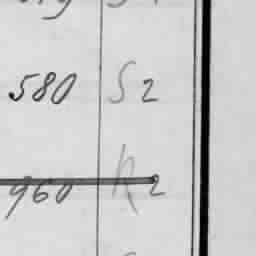 580 S2
960 h2